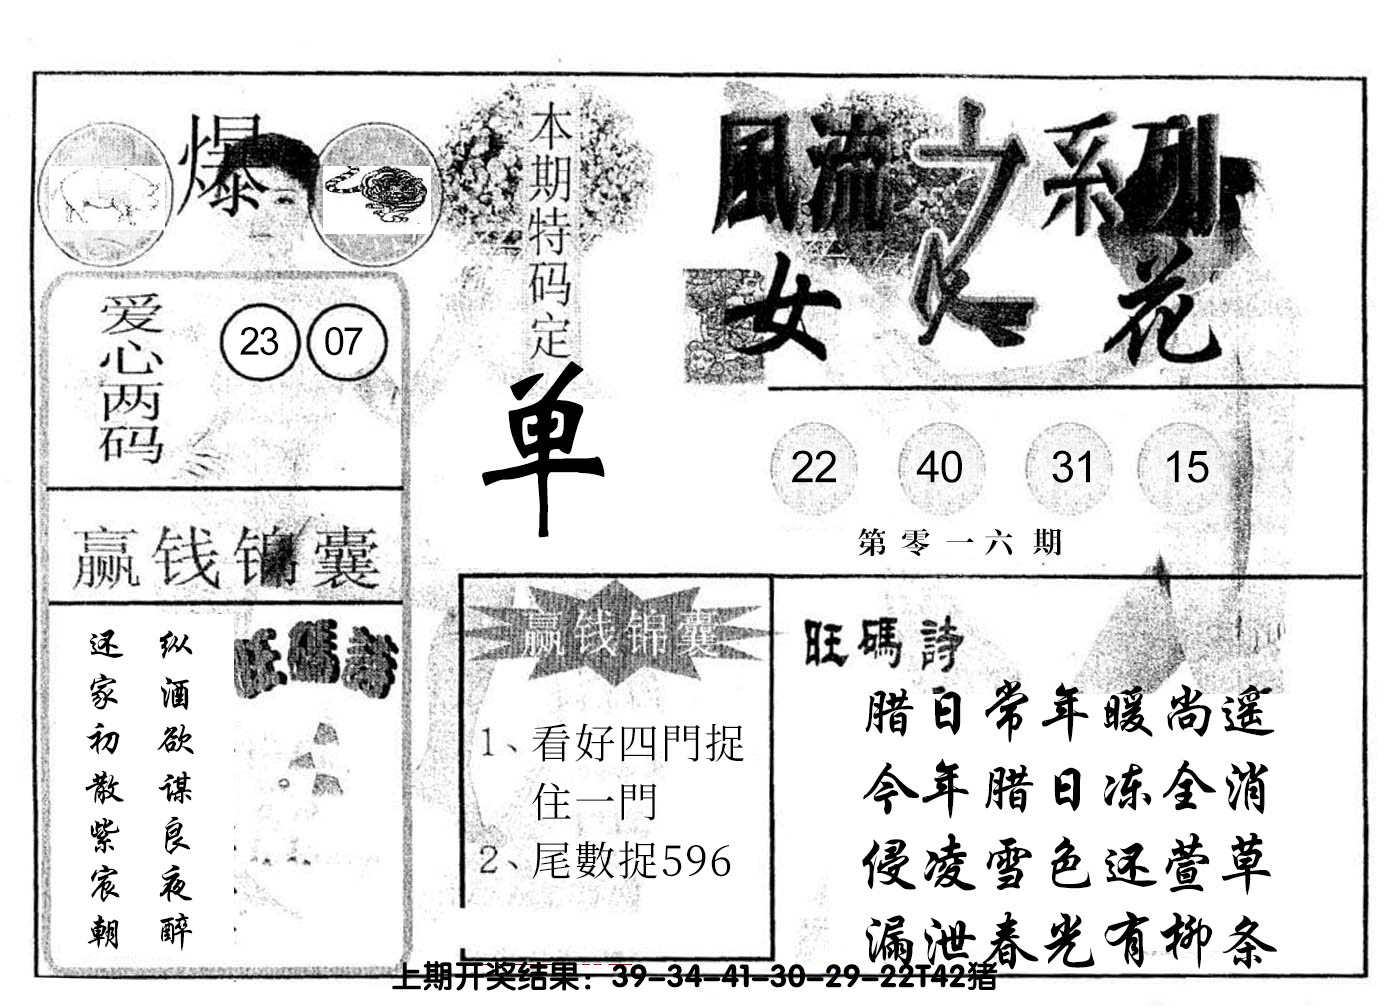 爆
爱心两码
23 07
赢钱锦囊
纵酒欲谋良夜醉
还家初散紫宸朝
旺碼詩
本期特码定
单
風流之系列
女人花
22 40 31 15
第零一六期
赢钱锦囊
1、看好四門捉
住一門
2、尾數捉596
旺碼詩
腊日常年暖尚遥
今年腊日冻全消
侵凌雪色还萱草
漏泄春光有柳条
上期开奖结果：39-34-41-30-29-22T42猪